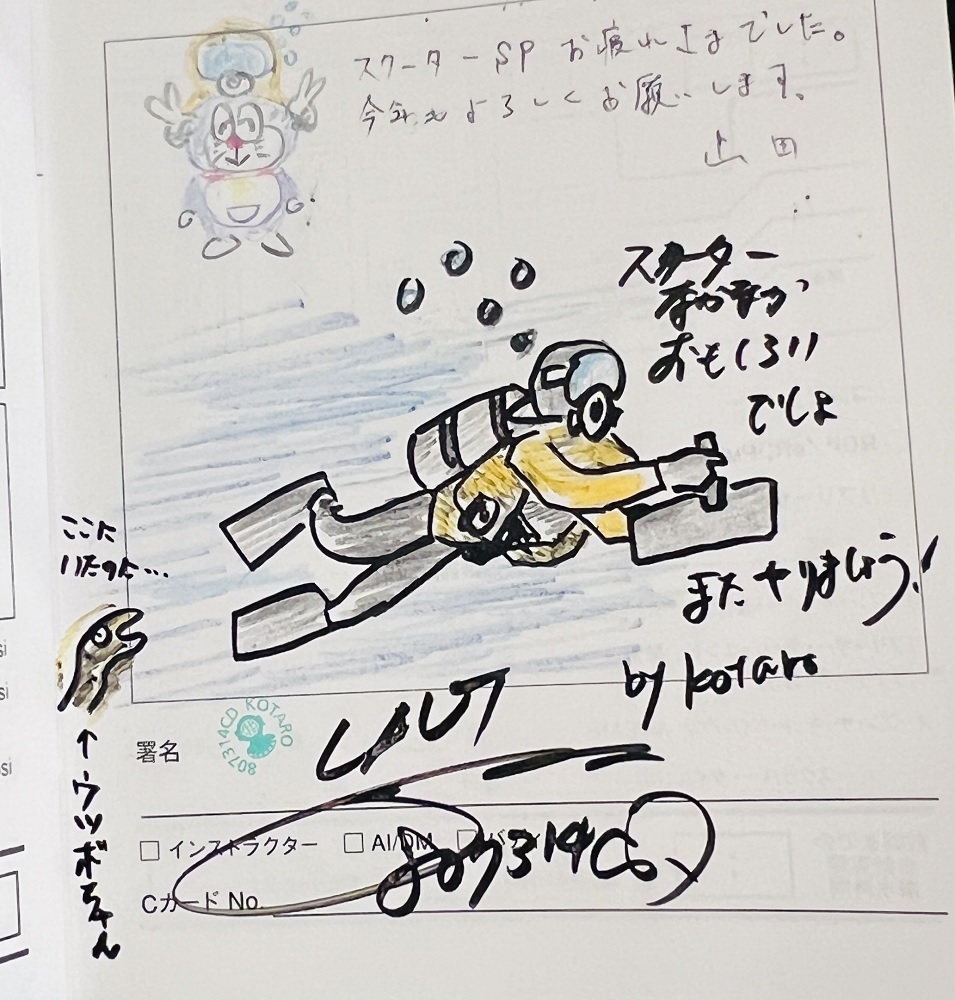 スクーターSP お疲れさまでした。
今年もよろしくお願いします。
山田
スクーター
なかなか
おもしろい
でしょ
また やりましょう!
by kotaro
ここに
いたのに…
↑ウツボちゃん
署名
807314CD KOTARO
□ インストラクター □ AI/DM □
807314CD
Cカード No.